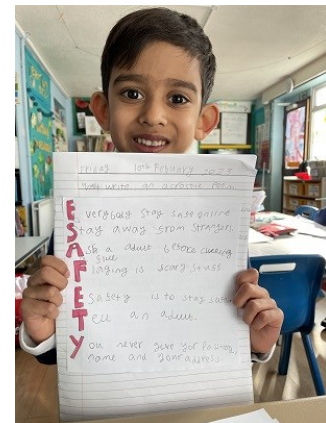 Friday 10th February
write an acrostic Poem
Everybody stay safe online
Stay away from strangers.
Ask a adult before clicking
Flaging is scary stuff
ESafety is to stay safe
Tell an adult.
You never give your
name and your address.